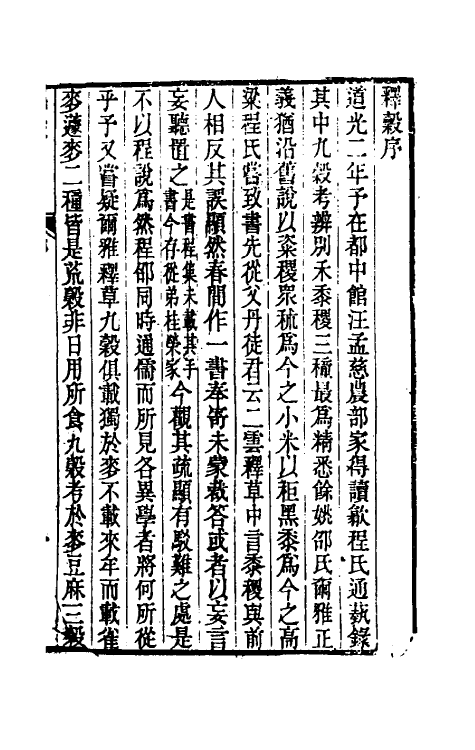 釋穀序
道光二年予在都中館汪孟慈農部家得讀歙程氏通藝錄
其中九穀考辨別禾黍稷三種最爲精悉餘姚邵氏爾雅正
義猶沿舊說以粢稷衆秫爲今之小米以秬黑黍爲今之高
粱程氏嘗致書先從父丹徒君云二雲釋草中言黍稷與前
人相反其誤顯然春閒作一書奉寄未蒙裁答或者以妄言
妄聽置之是書程集未載其手書今存從弟桂榮家今觀其疏顯有駁難之處是
不以程說爲然程邵同時通儒而所見各異學者將何所從
乎予又嘗疑爾雅釋草九穀俱載獨於麥不載來牟而載雀
麥蘧麥二種皆是荒穀非日用所食九穀考於麥豆麻三穀